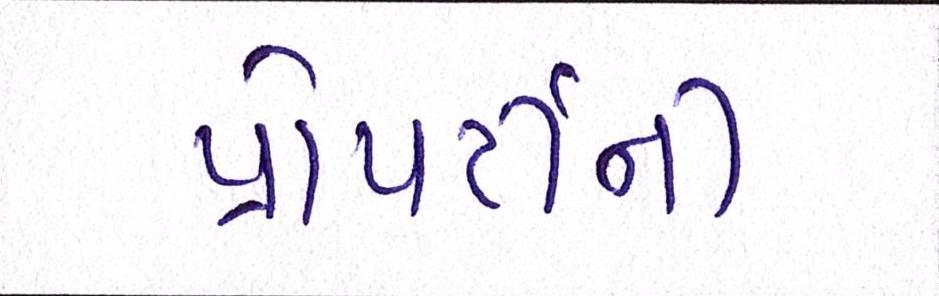 પ્રોપર્ટીની